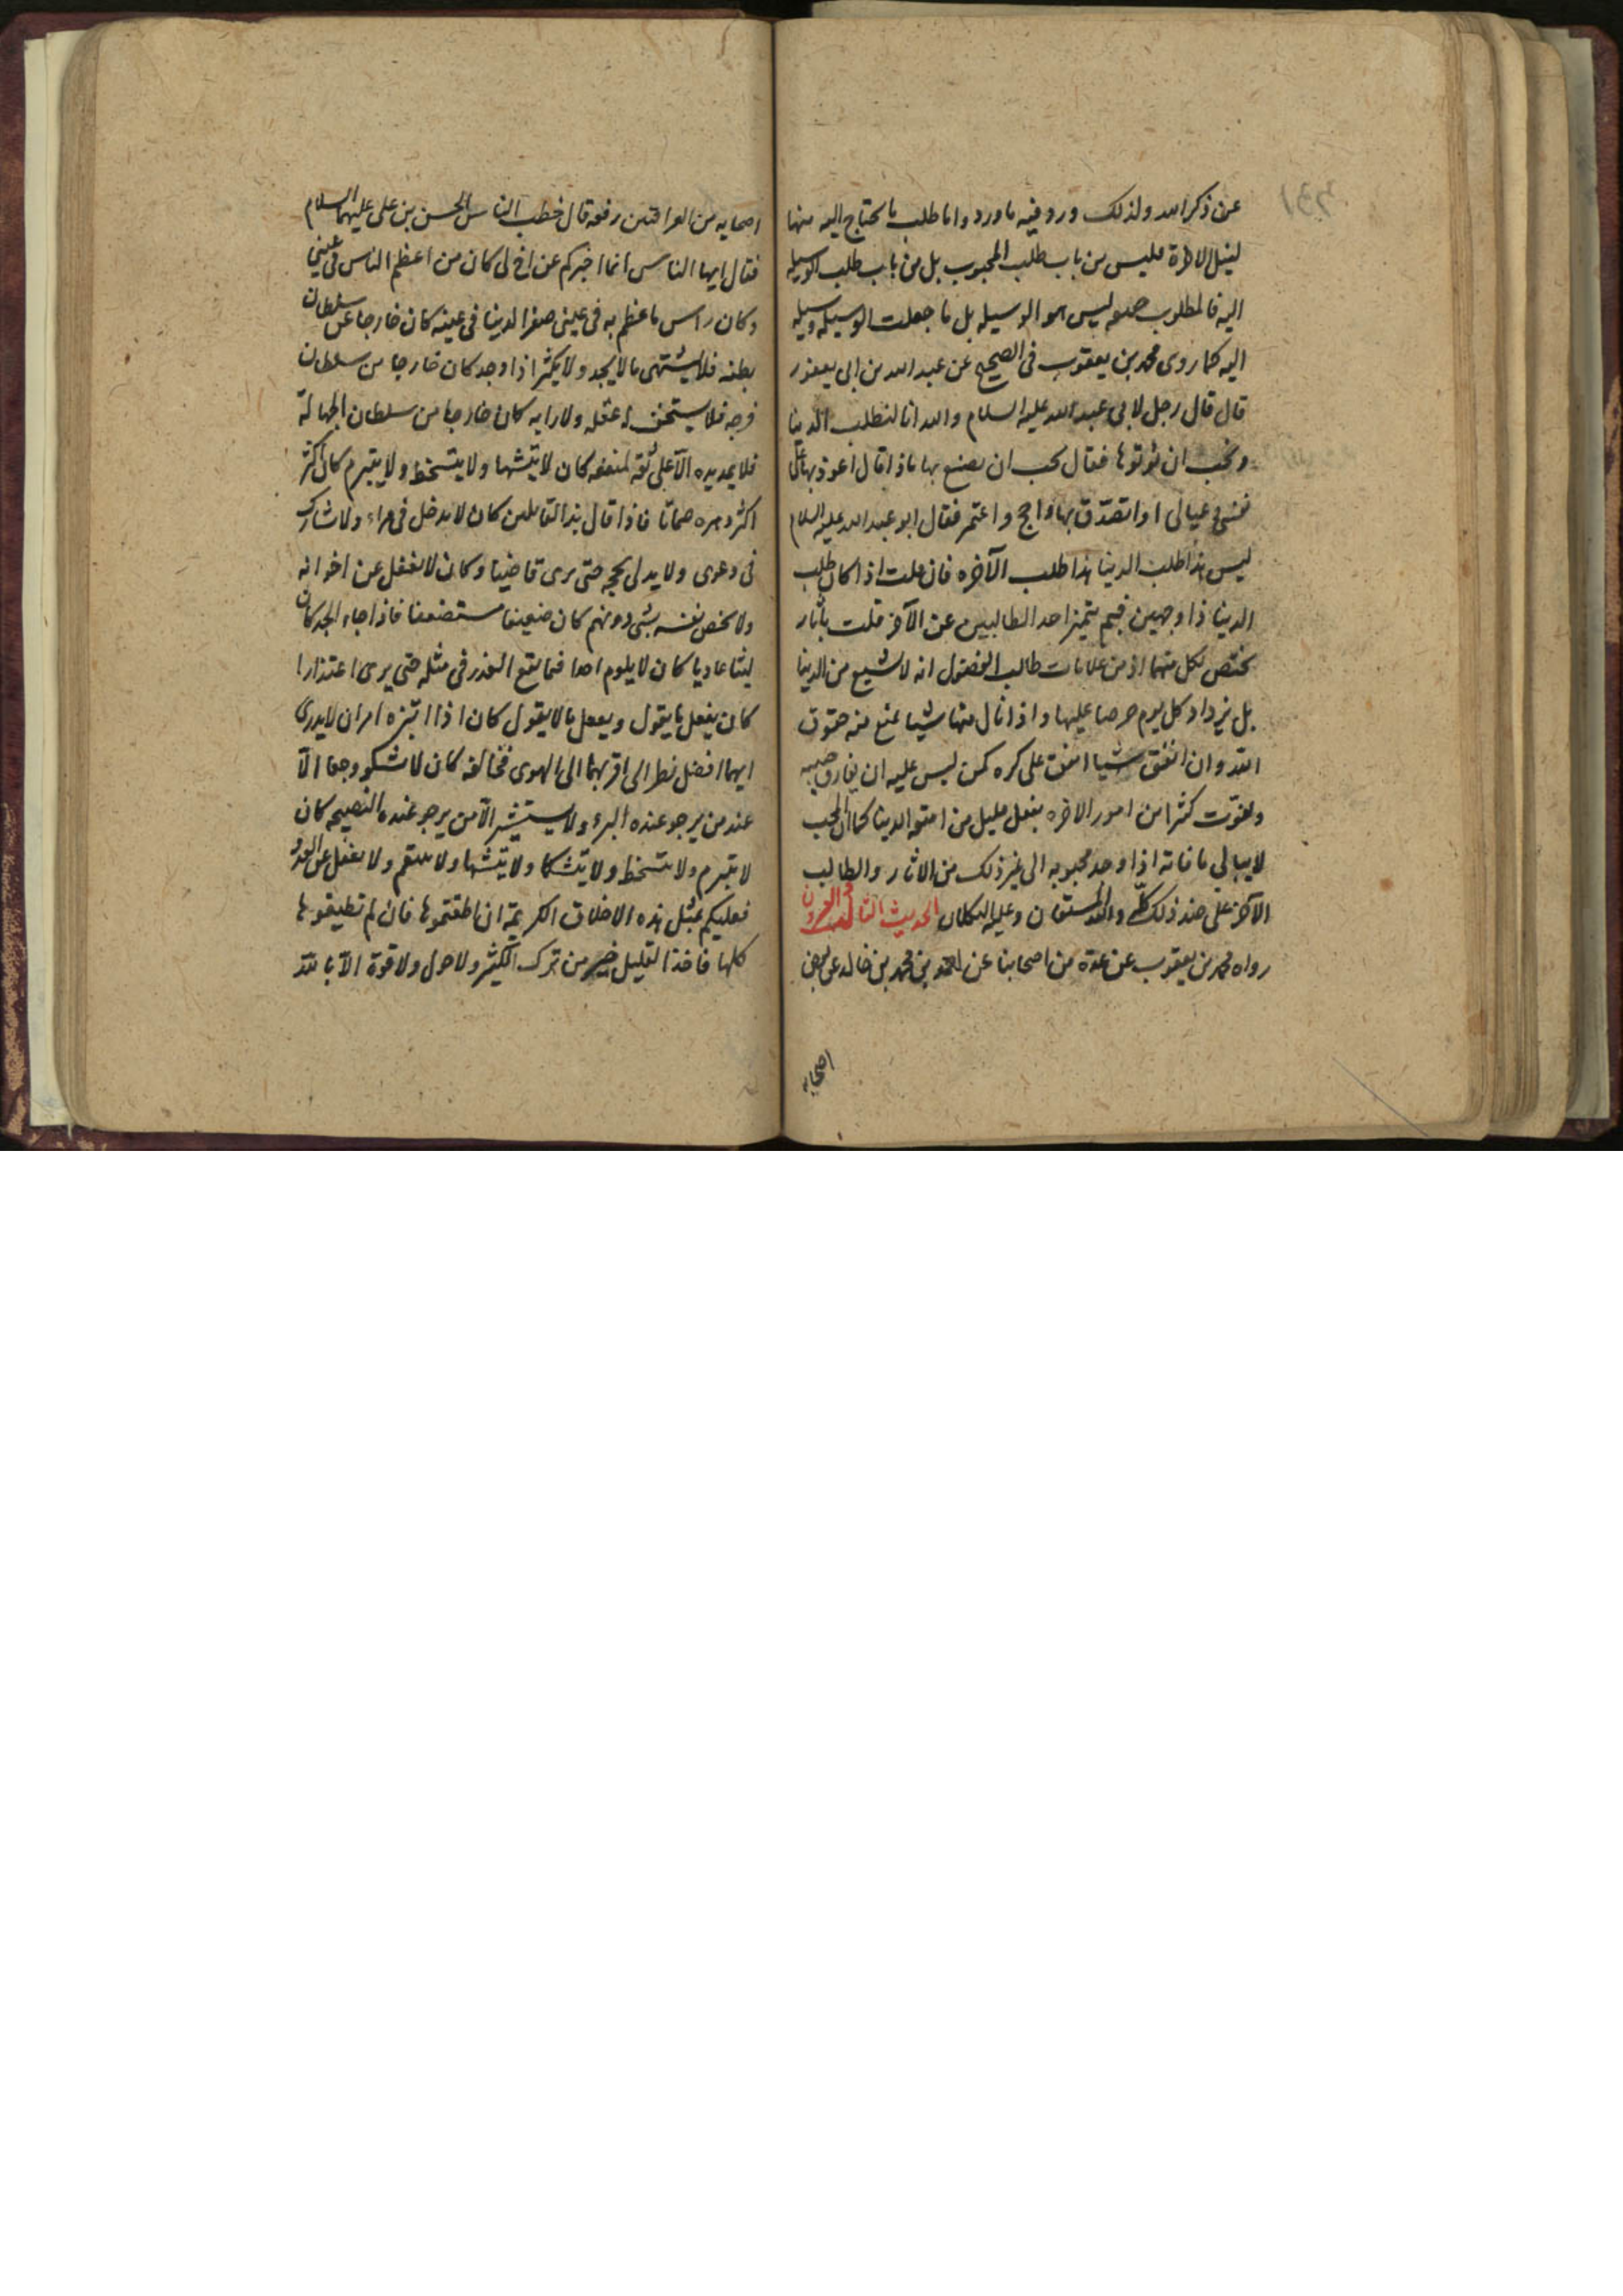 عن ذكر الله ولذلك ورد فيه ما ورد واما طلب ما يحتاج اليه منها
لنيل الاخرة فليس من باب طلب المحبوب بل من باب طلب الوسيله
اليه فالمطلوب حينئذ ليس هو الوسيله بل ما جعلت الوسيلة وسيله
اليه كما روى محمد بن يعقوب في الصحيح عن عبد الله بن ابى يعفور
قال قال رجل لابى عبد الله عليه السلام والله انا لنطلب الدنيا
ونحب ان نؤتوها فقال تحب ان تصنع بها ماذا قال اعود بها على
نفسى وعيالى او اتصدّق بها واحج واعتمر فقال ابو عبد الله عليه السلام
ليس هذا طلب الدنيا هذا طلب الآخره فان قلت اذا كان طلب
الدنيا ذا وجهين فبم يتميز احد الطالبين عن الآخر قلت بآثار
تختص بكل منهما اذ من علامات طالب الفضول انه لا يشبع من الدنيا
بل يزداد كل يوم حرصا عليها واذا نال منها شيئا منع منه حقوق
الله وان انفق شيئا انفق على كره كمن ليس عليه ان يفارق حبيبه
ويفوّت كثيرا من امور الاخره بفعل قليل من امتعة الدنيا كما ان المحب
لا يبالى ما فاته اذا وجد محبوبه الى غير ذلك من الاثار والطالب
الآخر على ضد ذلك كلّه والله المستعان وعليه التكلان الحديث الثالث والعشرون
رواه محمد بن يعقوب عن عدة من اصحابنا عن احمد بن محمد بن خالد عن بعض
اصحابه
اصحابه من العراقيين رفعه قال خطب الناس الحسن بن على عليهما السلام
فقال ايها الناس انما اخبركم عن اخ لى كان من اعظم الناس فى عينى
وكان راس ما عظم به فى عينى صغر الدنيا فى عينه كان خارجا عن سلطان
بطنه فلا يشتهى ما لا يجد ولا يكثر اذا وجد كان خارجا من سلطان
فرجه فلا يستخف له عقله ولا رايه كان خارجا من سلطان الجهالة
فلا يمد يده الّا على ثقة لمنفعه كان لا يتشها ولا يتسخط ولا يتبرم كان اكثر
اكثر دهره صماتا فاذا قال بذ القائلين كان لا يدخل فى مراء ولا يشارك
فى دعوى ولا يدلى بحجه حتى يرى قاضيا وكان لا يغفل عن اخوانه
ولا يخص نفسه بشئ دونهم كان ضعيفا مستضعفا فاذا جاء الجد كان
ليثا عاديا كان لا يلوم احدا فيما يقع العذر فى مثله حتى يرى اعتذارا
كان يفعل ما يقول ويفعل ما لا يقول كان اذا ابتزه امران لا يدرى
ايهما افضل نظر الى اقربهما الى الهوى فخالفه كان لا يشكو وجعا الّا
عند من يرجو عنده البرء ولا يستشير الّا من يرجو عنده النصيحه كان
لا يتبرم ولا يتسخط ولا يتشكا ولا يتشها ولا ينتقم ولا يغفل عن العدو
فعليكم بمثل هذه الاخلاق الكريمة ان اطقتموها فان لم تطيقوها
كلها فاخذ القليل خير من ترك الكثير ولا حول ولا قوة الّا بالله